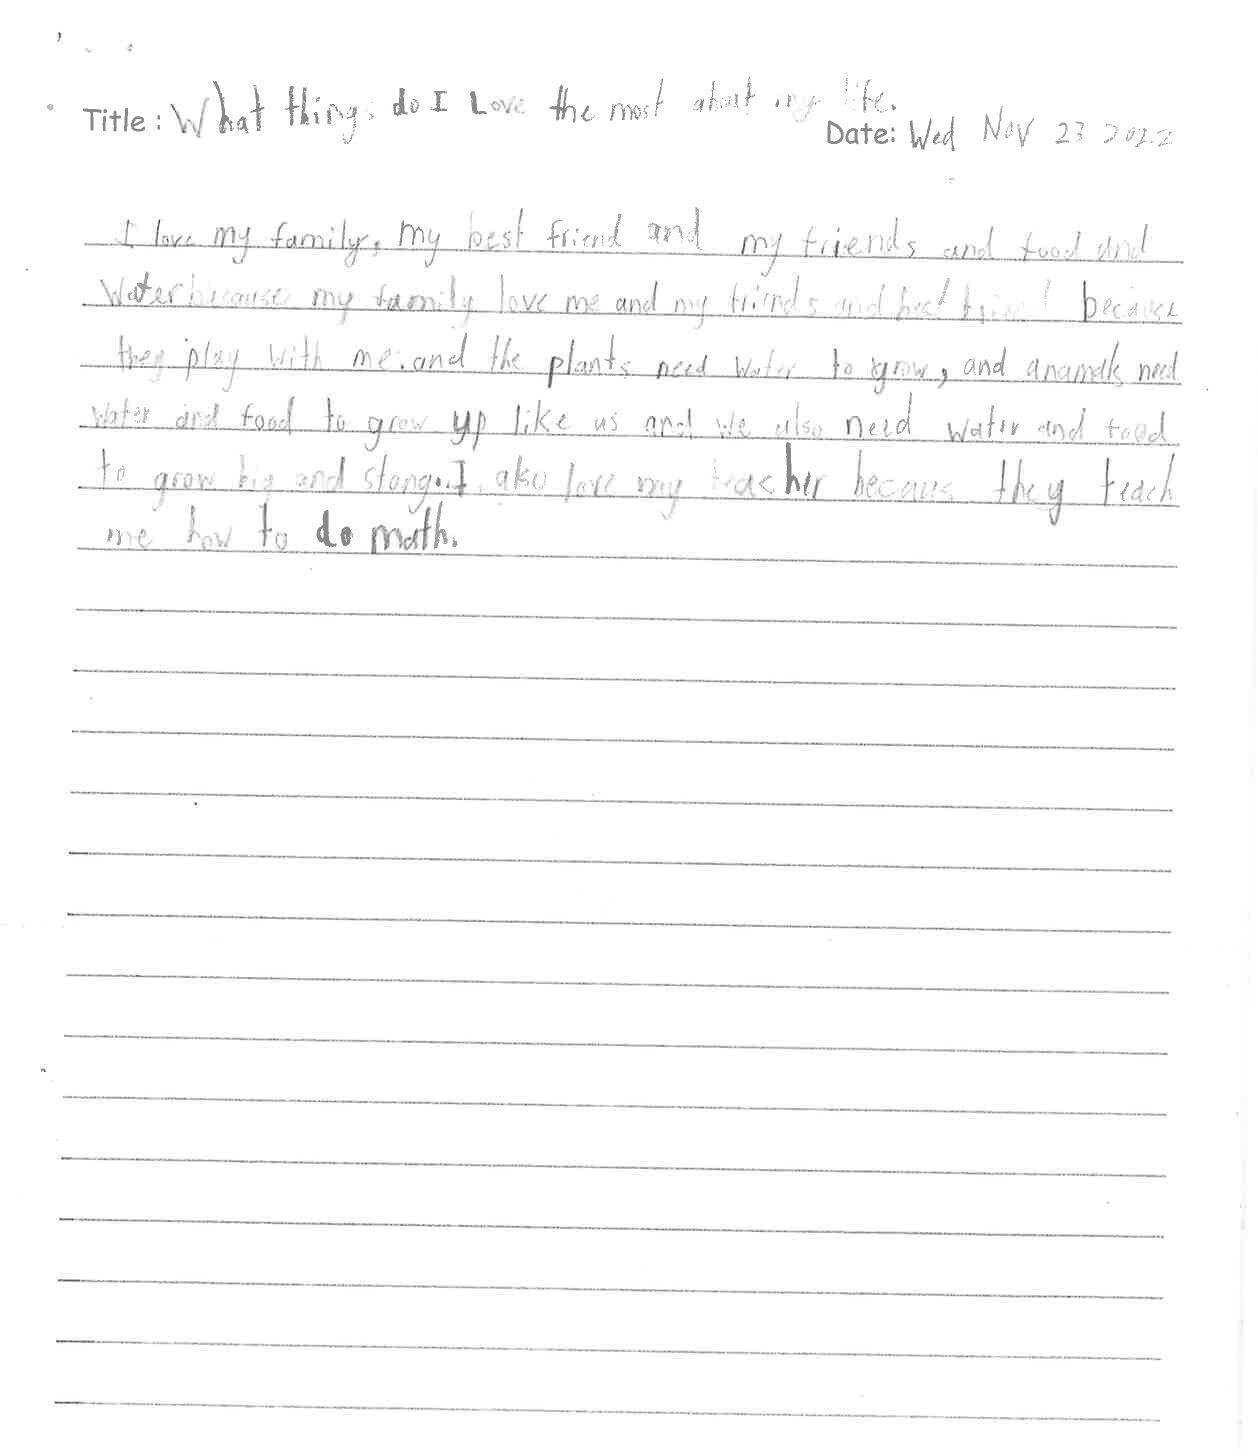 Title: What things do I Love the most about my life.
Date: Wed Nov 23 2022
I love my family, my best friend and my friends and food and
Water because my family love me and my friends and best friend because
they play with me. and the plants need water to grow, and anamals need
water and food to grow up like us and we also need water and food
to grow big and stong. I also love my teacher becaus they teach
me how to do math.